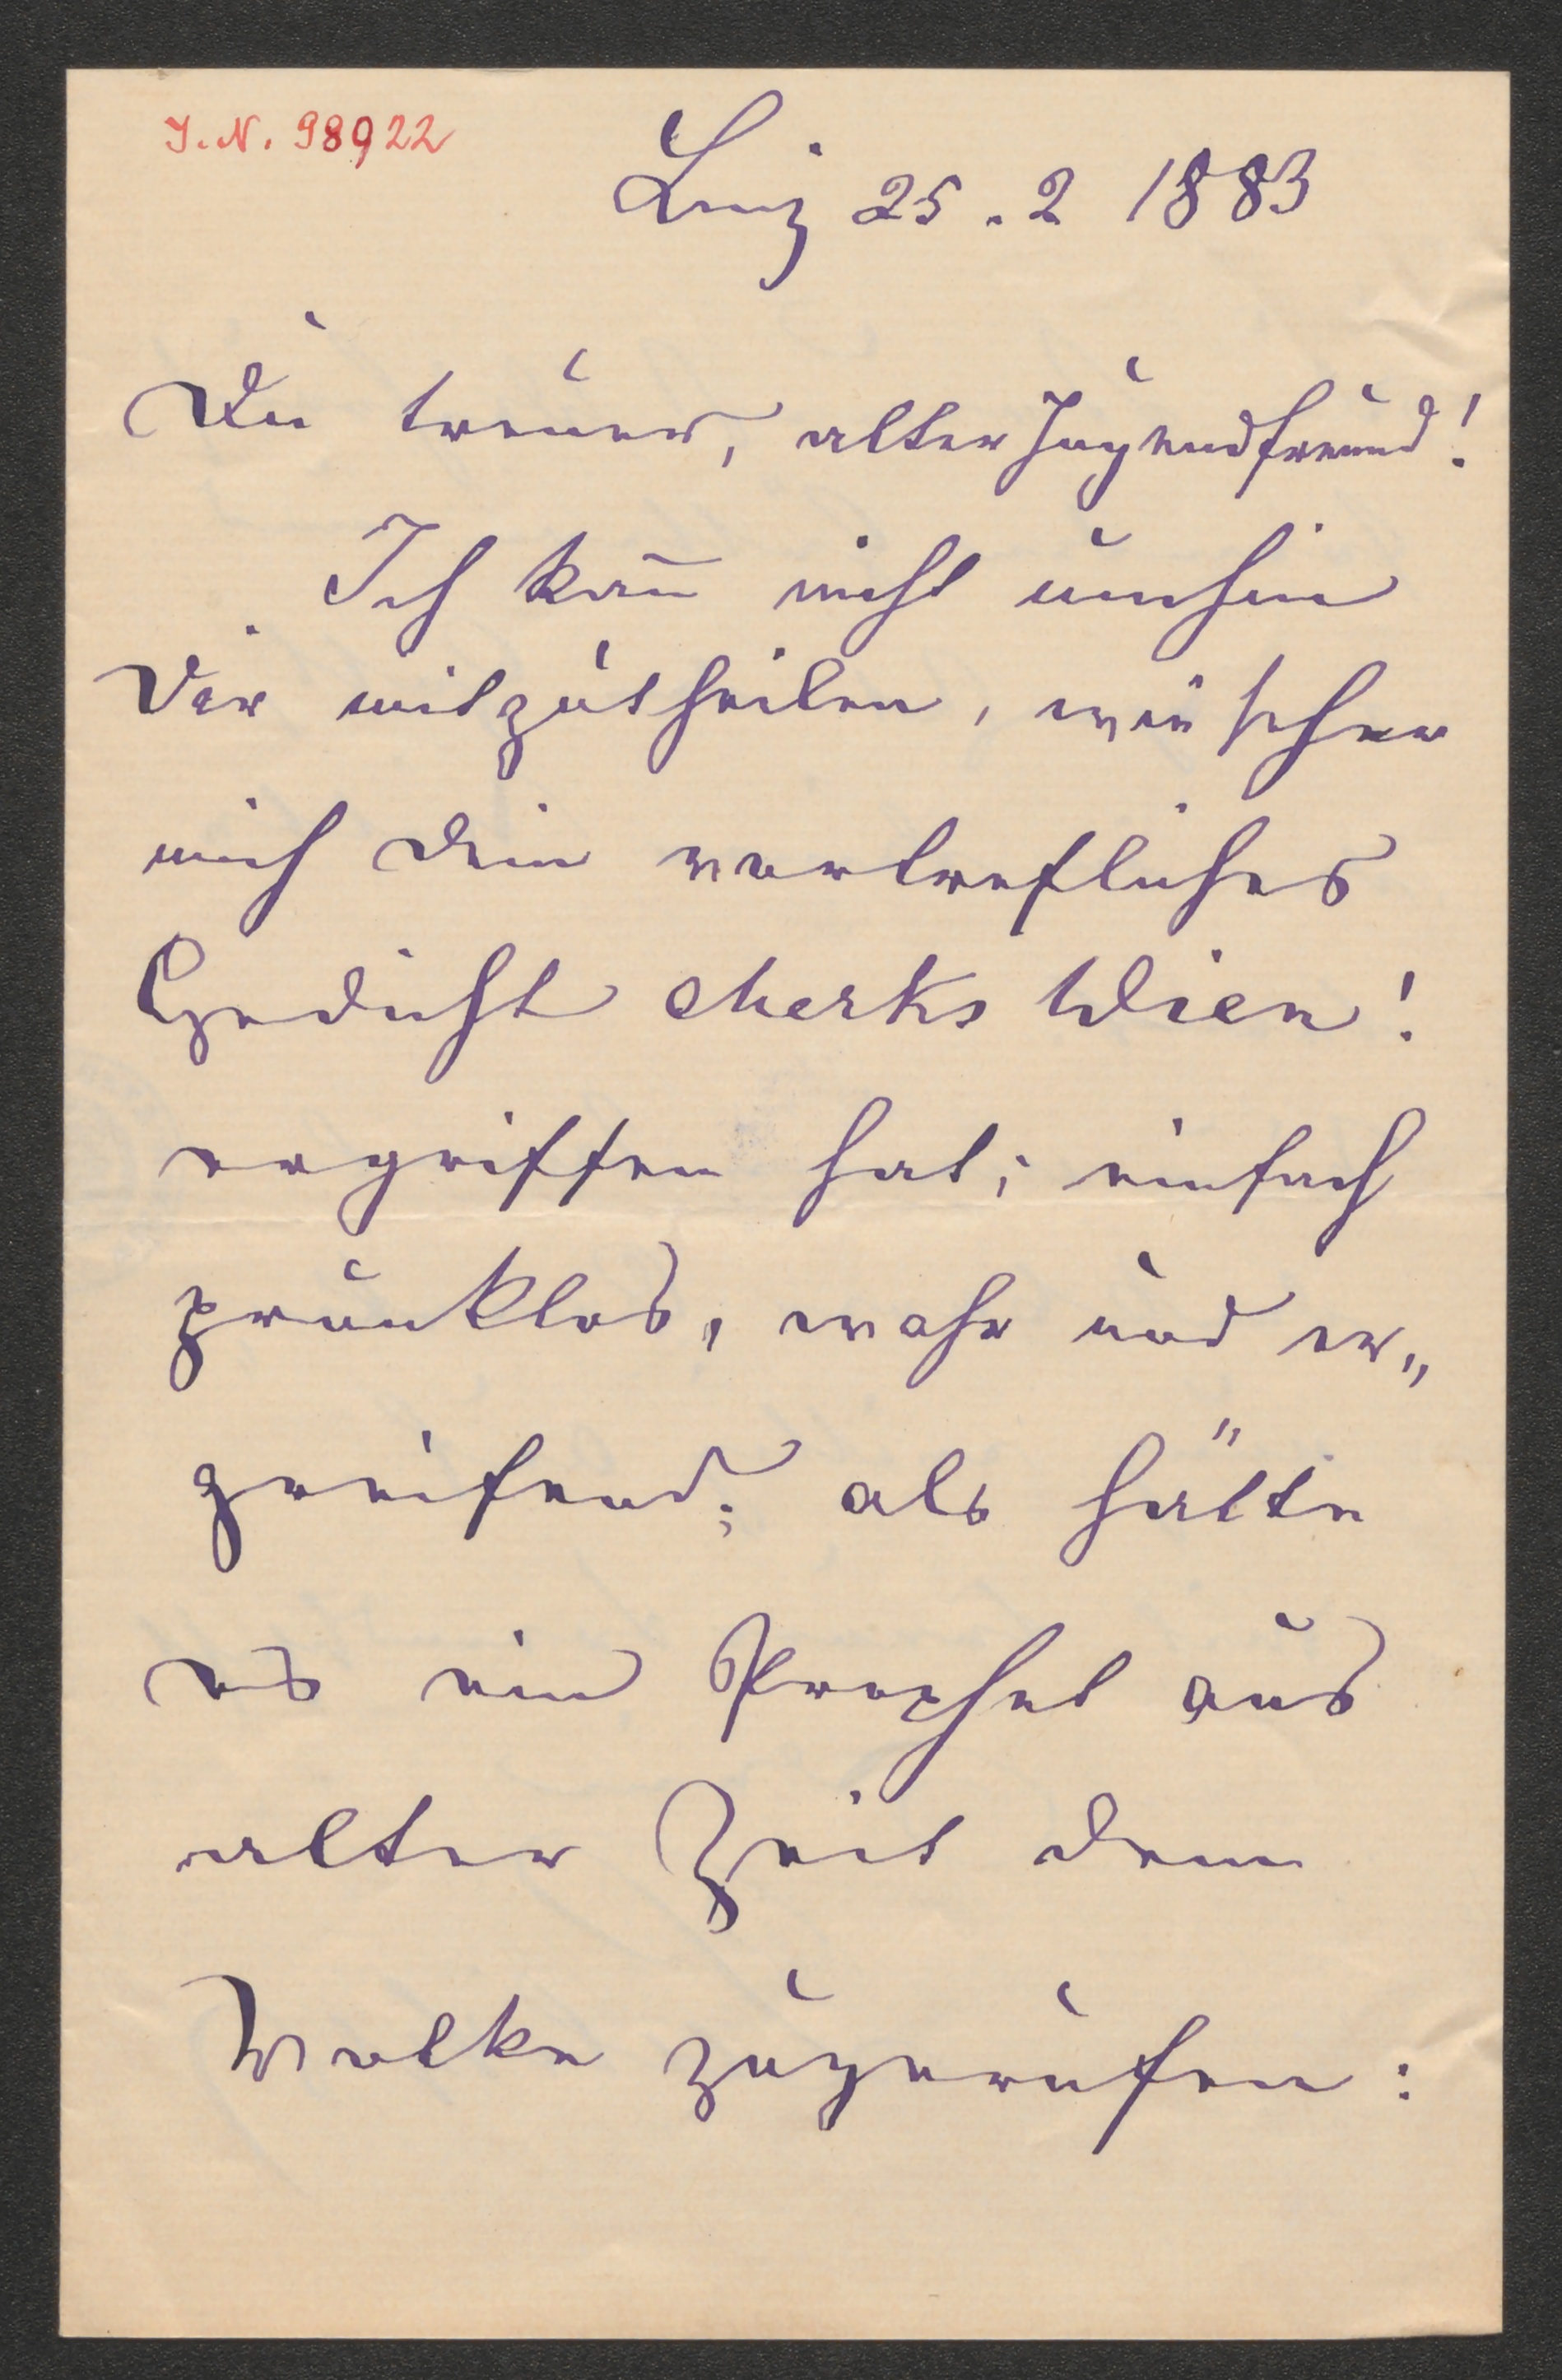 I. N. 98922
Linz 25. 2 1883
Du treuer, alter Jugendfreund!
Ich kan̄ nicht umhin
Dir mitzutheilen, wie sehr
mich dein vortrefliches
Gedicht Merks Wien!
ergriffen hat; einfach
prunklos, wahr und er„
greifend; als hätte
es ein Prophet aus
alter Zeit dem
Volke zugerufen: